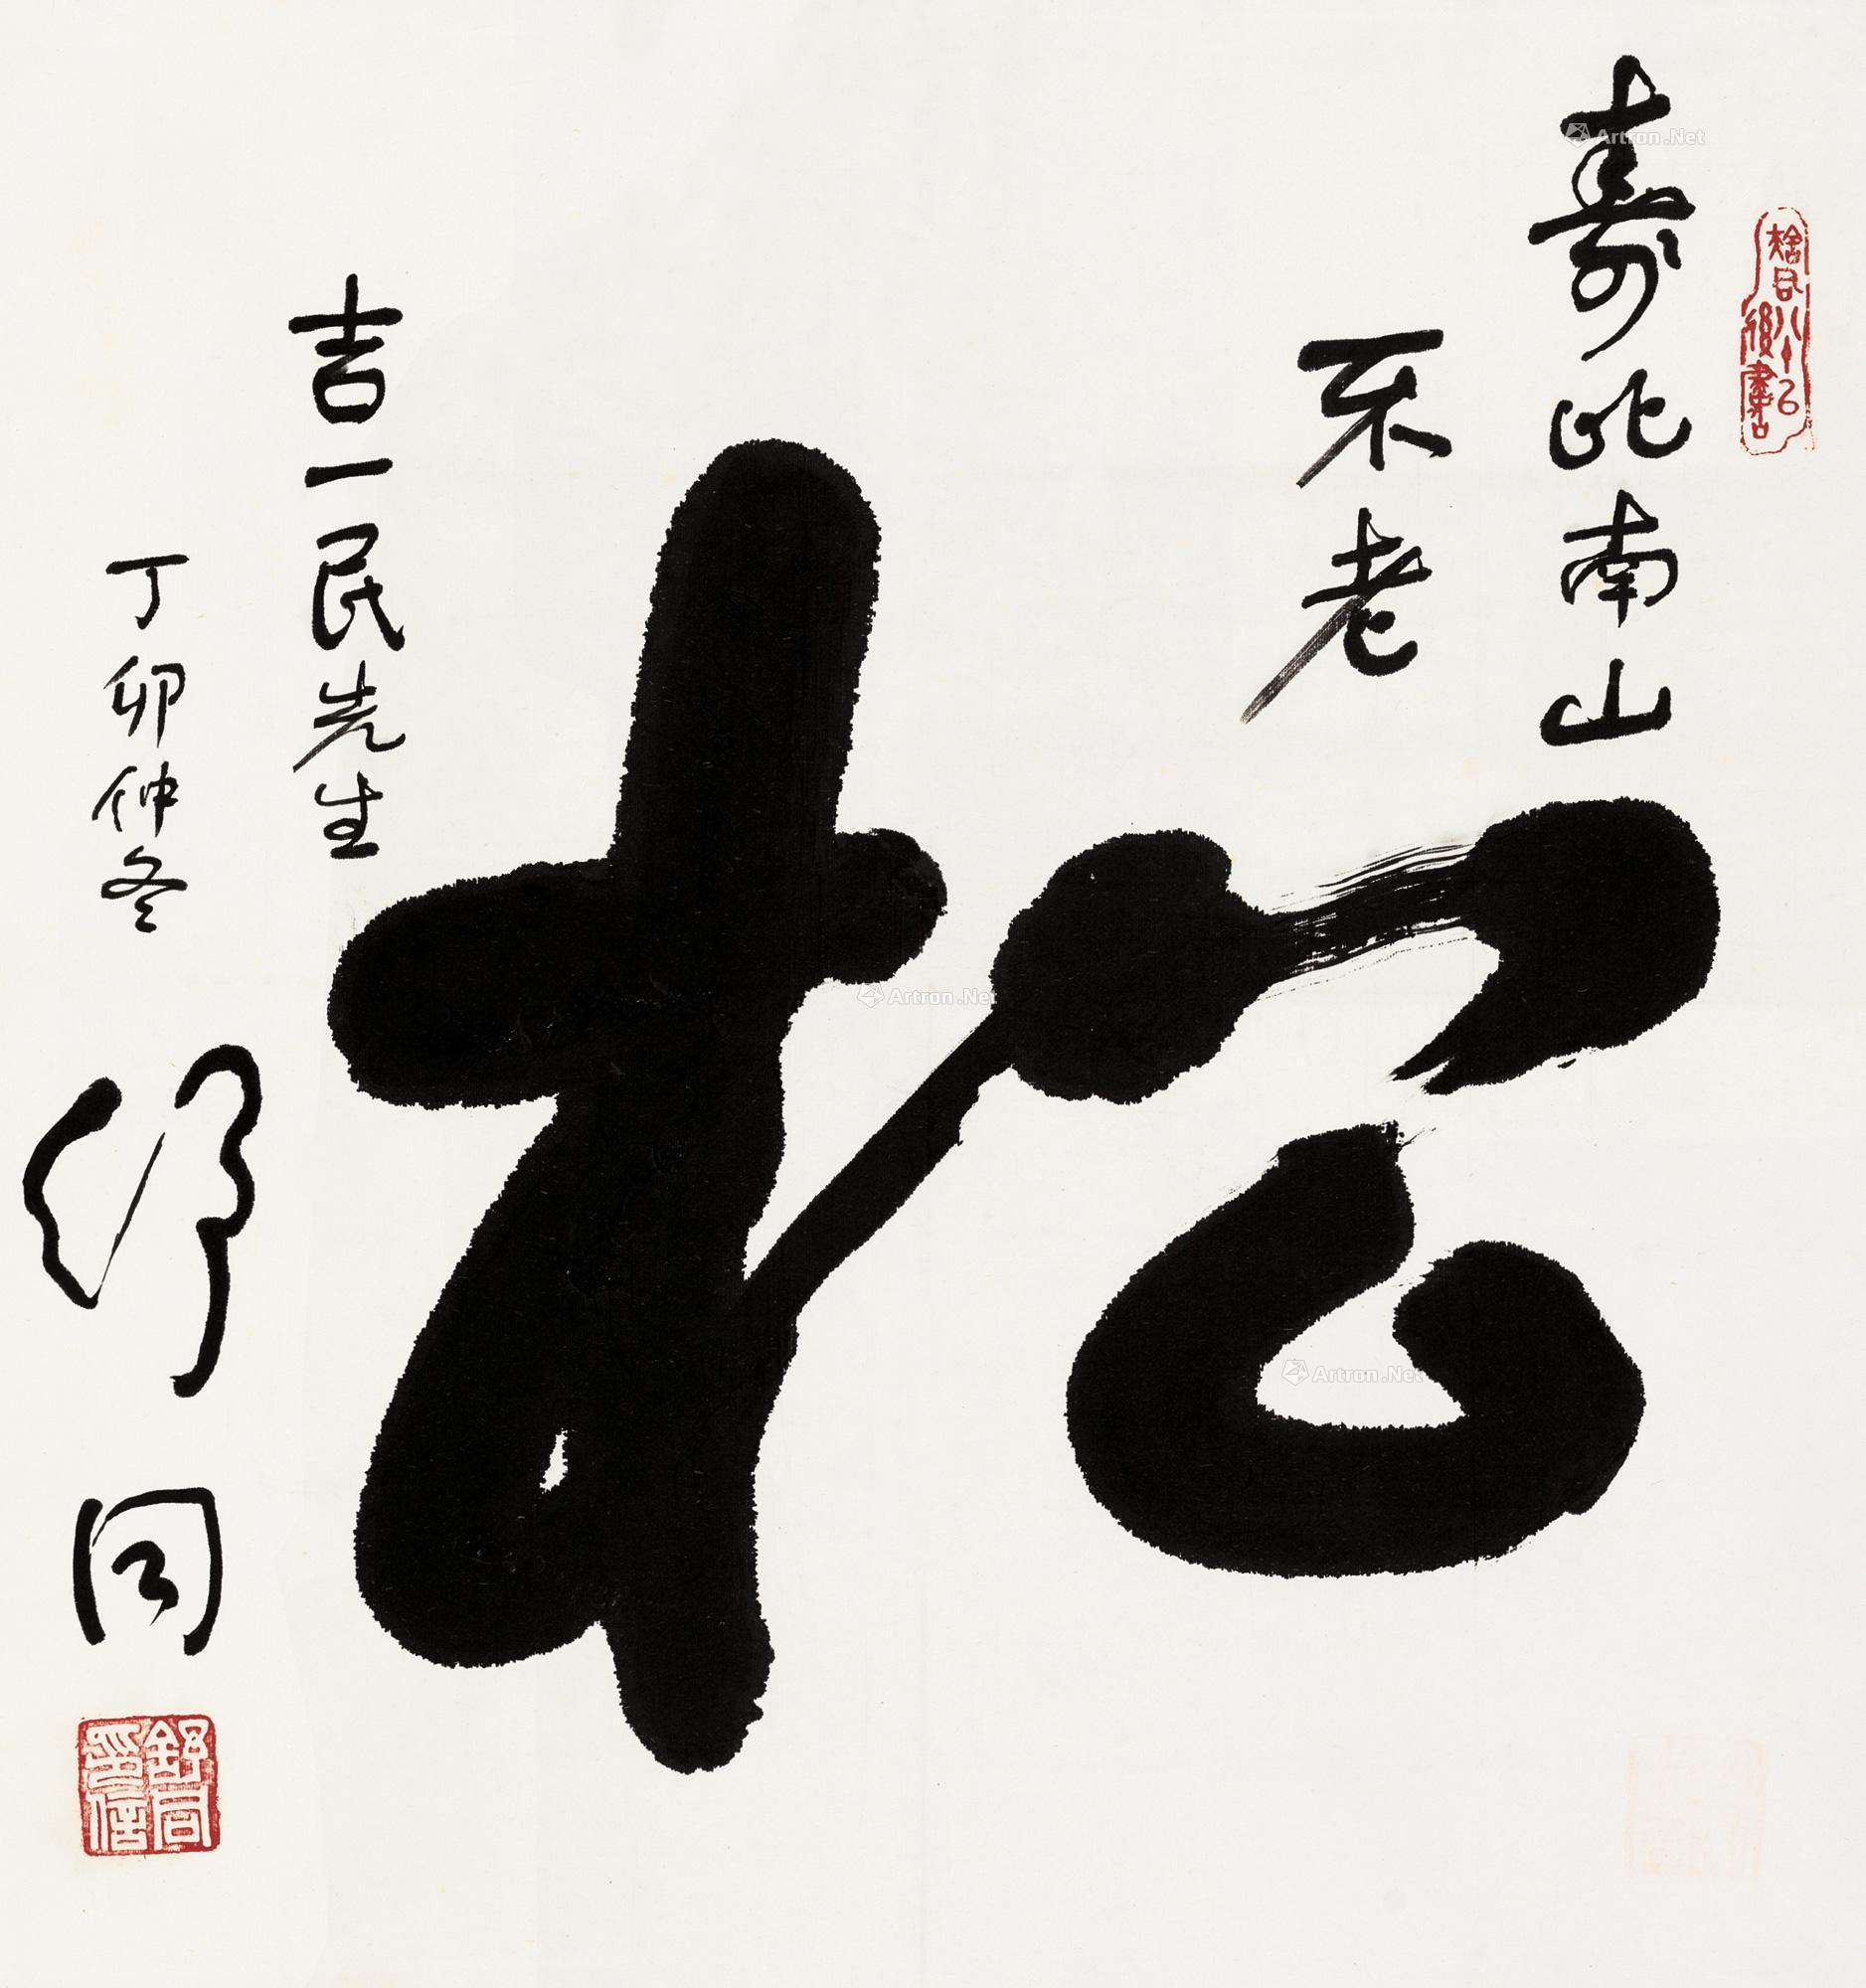 寿比南山
不老
松
吉一民先生
丁卯仲冬
舒同
舒同印信
Artron.Net
Artron.Net
Artron.Net